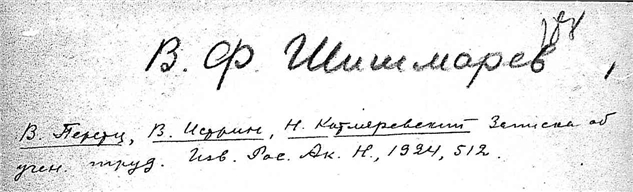 В. Ф. Шишмарев
В. Перетц, В. Истрин, Н. Котляревский Записка об
учен. труд. Изв. Рос. Ак. Н., 1924, 512.